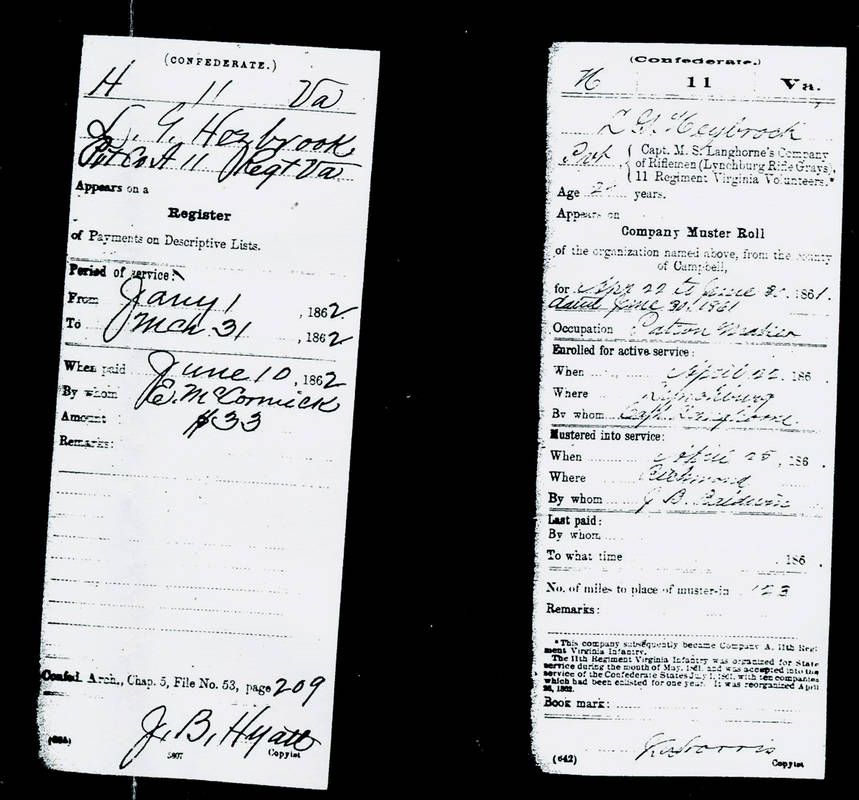 (CONFEDERATE.)
H 11 Va
L. G. Hoybrook
Pvt Co A 11 Regt Va
Appears on a
Register
of Payments on Descriptive Lists.
Period of service:
From Jany 1, 1862
To Mch 31, 1862
When paid June 10, 1862
By whom E. McCormick
Amount : $33
Remarks:
Confed. Arch., Chap. 5, File No. 53, page 209
J. B. Hyatt
Copyist
(Confederate.)
H 11 Va.
L G. Heybrock
Pvt { Capt. M. S. Langhorne's Company
of Riflemen (Lynchburg Rifle Grays),
11 Regiment Virginia Volunteers.*
Age years.
Appears on
Company Muster Roll
of the organization named above, from the county
of Campbell,
for Apr 22 to June 30, 1861.
dated June 30, 1861
Occupation Pattern Maker
Enrolled for active service:
When April 22, 186
Where Lynchburg
By whom Capt Langhorne
Mustered into service:
When April 25, 186 .
Where Richmond
By whom J. B. Baldwin
Last paid:
By whom
To what time , 186 .
No. of miles to place of muster-in 123
Remarks:
*This company subsequently became Company A, 11th Regi-
ment Virginia Infantry.
The 11th Regiment Virginia Infantry was organized for State
service during the month of May, 1861, and was accepted into the
service of the Confederate States July 1, 1861, with ten companies
which had been enlisted for one year. It was reorganized April
26, 1862.
Book mark:
(642) Copyist